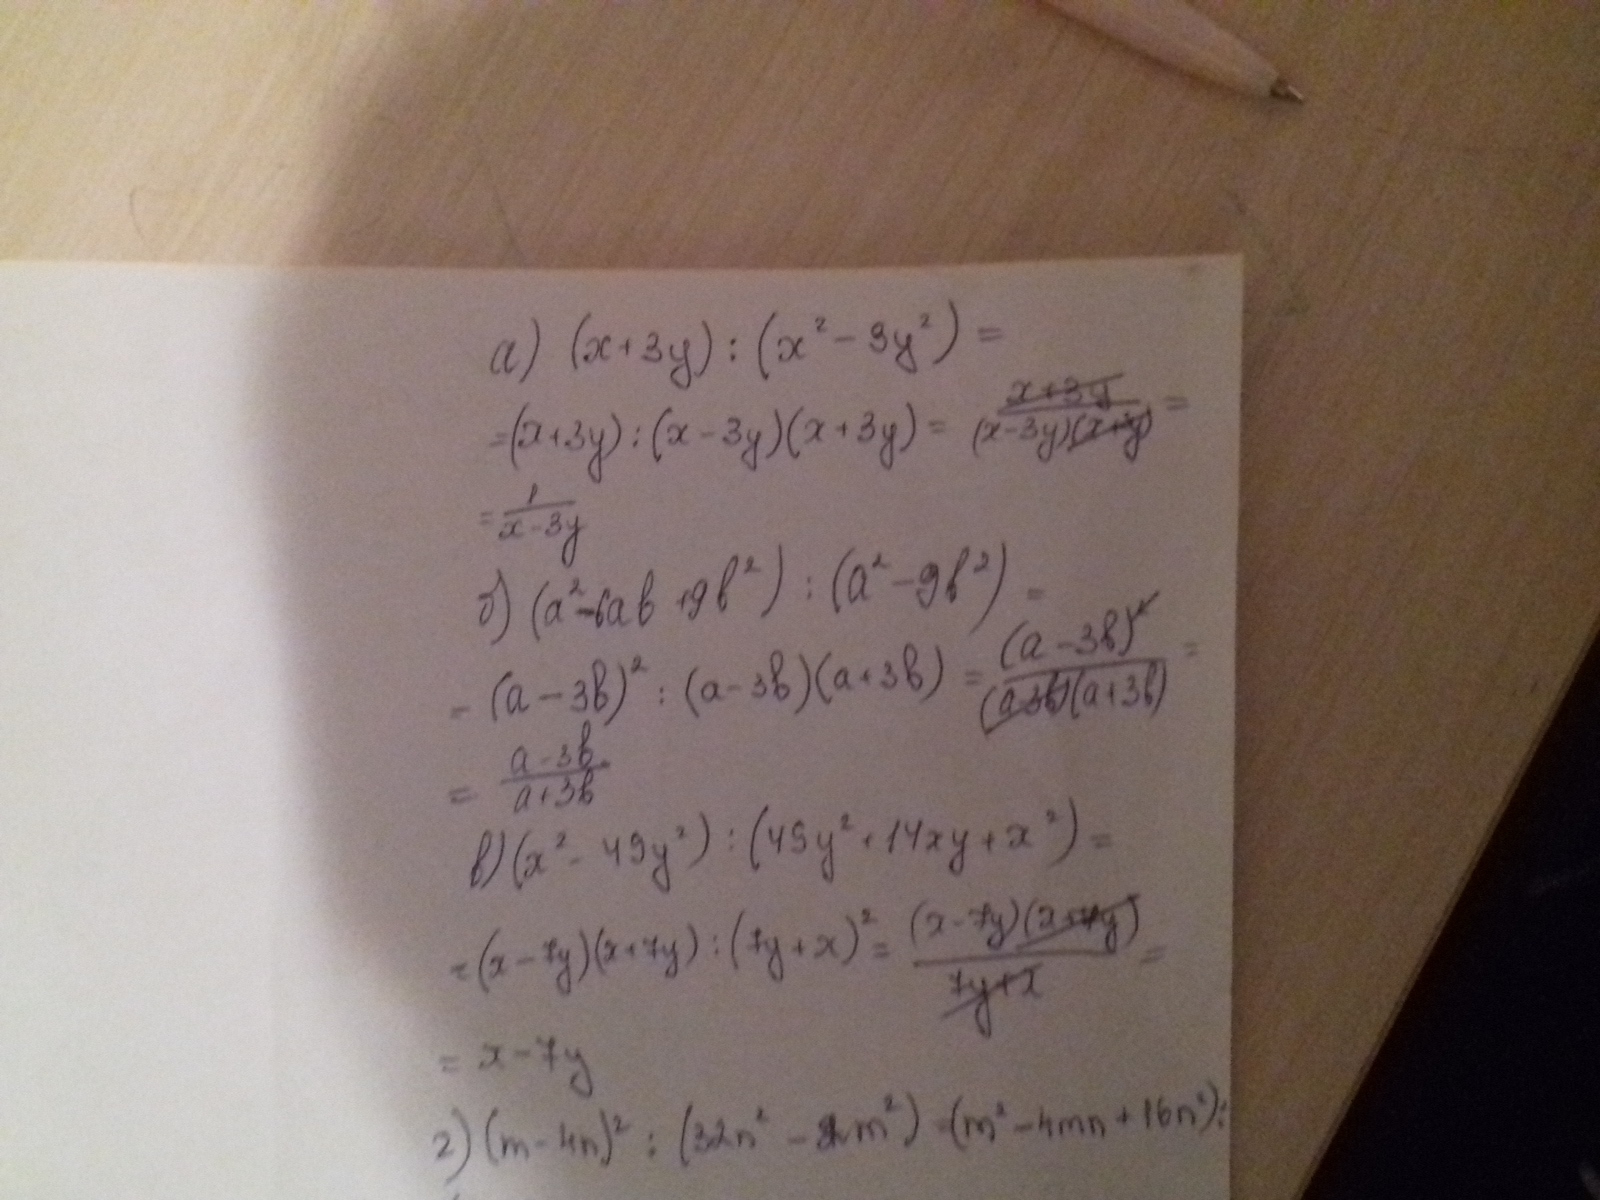 а) (x+3y) : (x² - 9y²) =
= (x+3y) : (x - 3y)(x + 3y) = x+3y / (x-3y)(x+3y) =
= 1 / x - 3y
б) (a² - 6ab + 9b²) : (a² - 9b²) =
= (a - 3b)² : (a - 3b)(a + 3b) = (a - 3b)² / (a-3b)(a+3b) =
= a - 3b / a + 3b
в) (x² - 49y²) : (49y² + 14xy + x²) =
= (x - 7y)(x + 7y) : (7y + x)² = (x - 7y)(x + 7y) / 7y + x =
= x - 7y
г) (m - 4n)² : (32n² - 2m²) = (m² - 4mn + 16n²) :